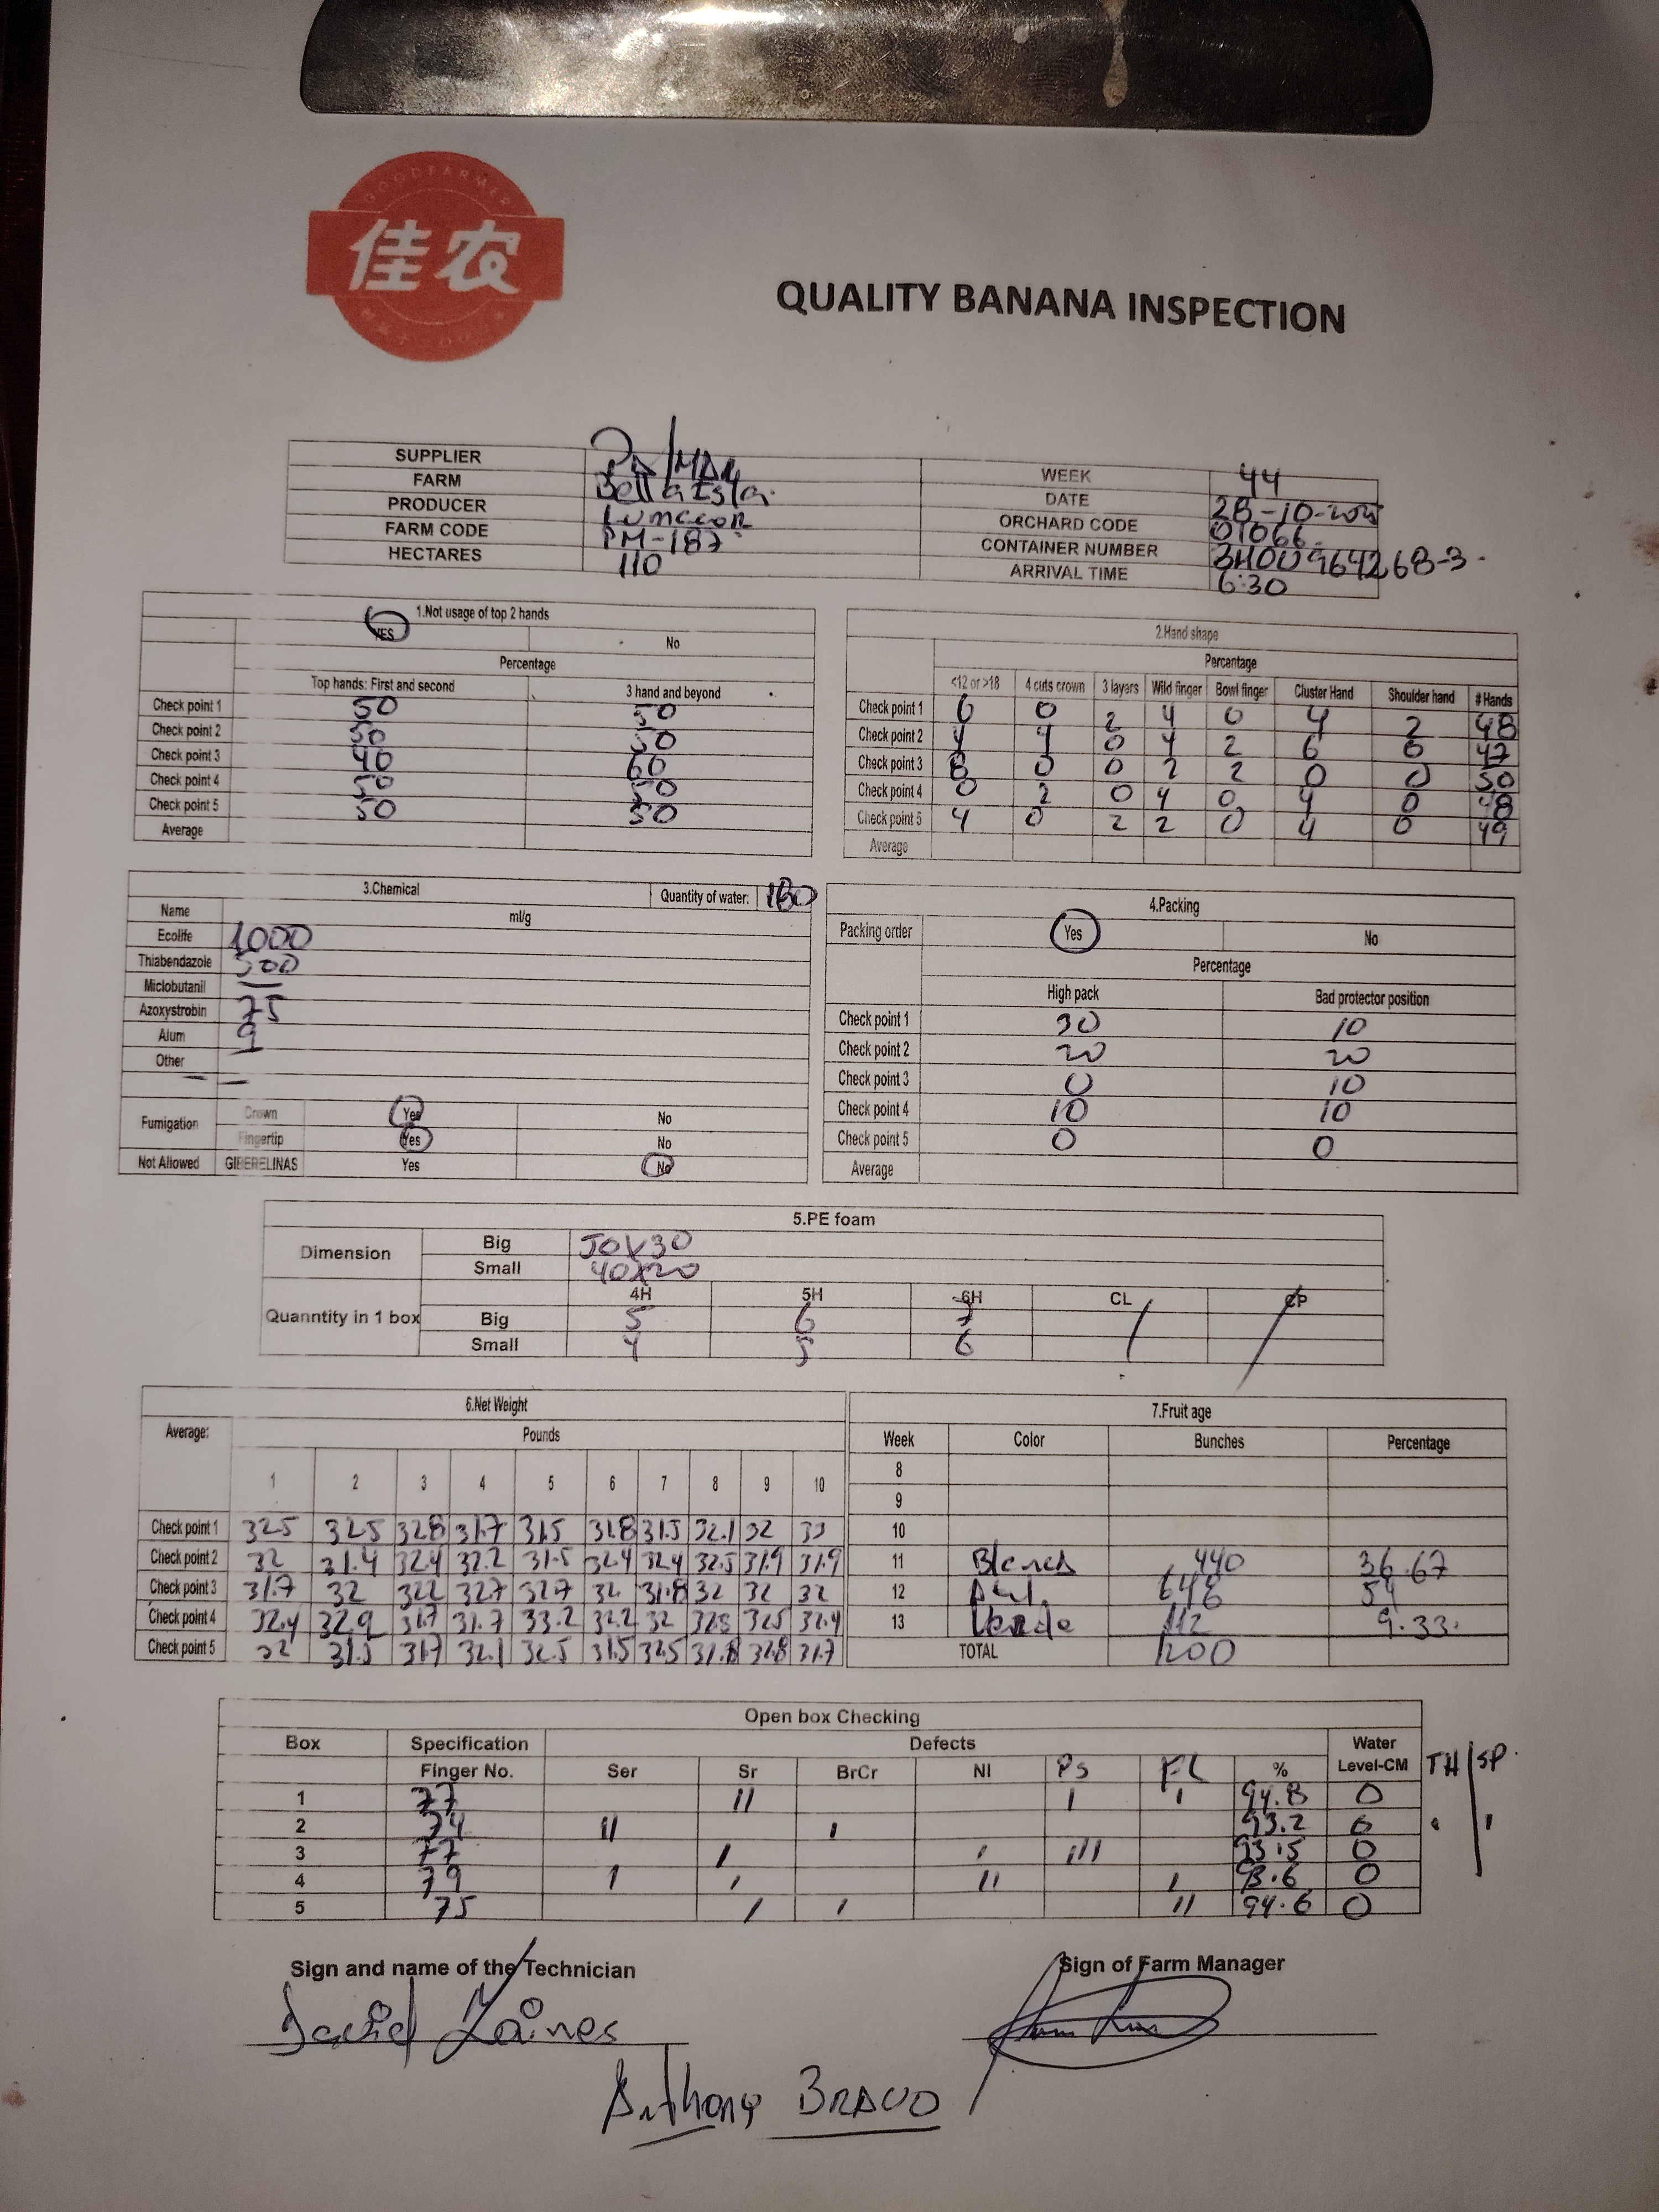 GOODFARMER
佳农
QUALITY BANANA INSPECTION
SUPPLIER
FARM Bella Isla.
PRODUCER
FARM CODE PM-187
HECTARES 110
WEEK 44
DATE 28-10-2025
ORCHARD CODE 01066
CONTAINER NUMBER
ARRIVAL TIME 6:30
1.Not usage of top 2 hands
YES No
Percentage
Top hands: First and second 3 hand and beyond
Check point 1 50 50
Check point 2 50 50
Check point 3 40 60
Check point 4 50 50
Check point 5 50 50
Average
2.Hand shape
Percentage
<12 or >18 4 cuts crown 3 layars Wild finger Bowl finger Cluster Hand Shoulder hand # Hands
Check point 1 6 0 2 4 0 4 2 48
Check point 2 4 4 0 4 2 6 0 47
Check point 3 0 0 2 2 0 0 50
Check point 4 0 2 0 4 0 4 0 48
Check point 5 4 0 2 2 0 4 0 49
Average
3.Chemical Quantity of water: 180
Name ml/g
Ecolife 1000
Thiabendazole 500
Miclobutanil —
Azoxystrobin 75
Alum 9
Other —
Fumigation Crown Yes No
Fingertip Yes No
Not Allowed GIBERELINAS Yes No
4.Packing
Packing order Yes No
Percentage
High pack Bad protector position
Check point 1 30 10
Check point 2 20 20
Check point 3 0 10
Check point 4 10 10
Check point 5 0 0
Average
5.PE foam
Dimension Big 50X30
Small 40X20
Quanntity in 1 box 4H 5H 6H CL CP
Big 5 6 7
Small 4 5 6
6.Net Weight
Average: Pounds
1 2 3 4 5 6 7 8 9 10
Check point 1 32.5 32.5 32.8 31.7 31.5 31.8 31.5 32.1 32 33
Check point 2 32 31.4 32.4 32.2 31.5 32.4 32.4 32.5 31.9 31.9
Check point 3 31.7 32 32.2 32.7 32.7 32 31.8 32 32 32
Check point 4 32.4 32.9 31.7 31.7 33.2 32.2 32 32.8 32.5 32.4
Check point 5 32 31.5 31.7 32.1 32.5 31.5 32.5 31.8 32.8 31.7
7.Fruit age
Week Color Bunches Percentage
8
9
10
11 Blanca 440 36.67
12 Azul 648 54
13 Verde 112 9.33.
TOTAL 1200
Open box Checking
Box Specification Defects Water
Finger No. Ser Sr BrCr NI PS FL % Level-CM TH SP.
1 77 II I I 94.8 0
2 74 II I 93.2 0 I
3 77 I I III 93.15 0
4 79 I I II I 93.6 0
5 75 I I II 94.6 0
Sign and name of the Technician
Sign of Farm Manager
David
Anthony BRAVO